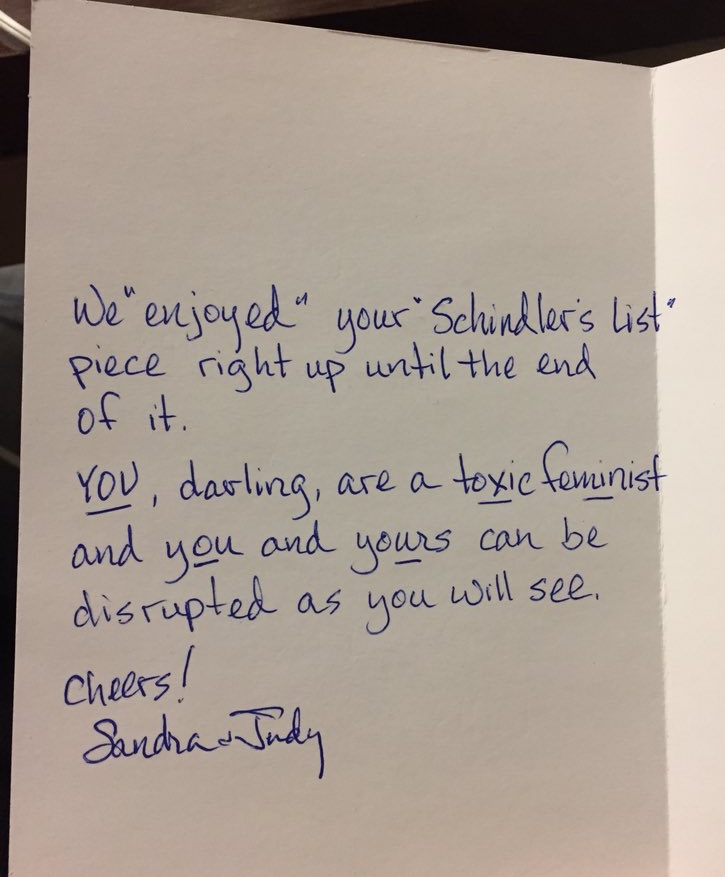 We "enjoyed" your "Schindler's List"
piece right up until the end
of it.
YOU, darling, are a toxic feminist
and you and yours can be
disrupted as you will see.
Cheers!
Sandra & Judy